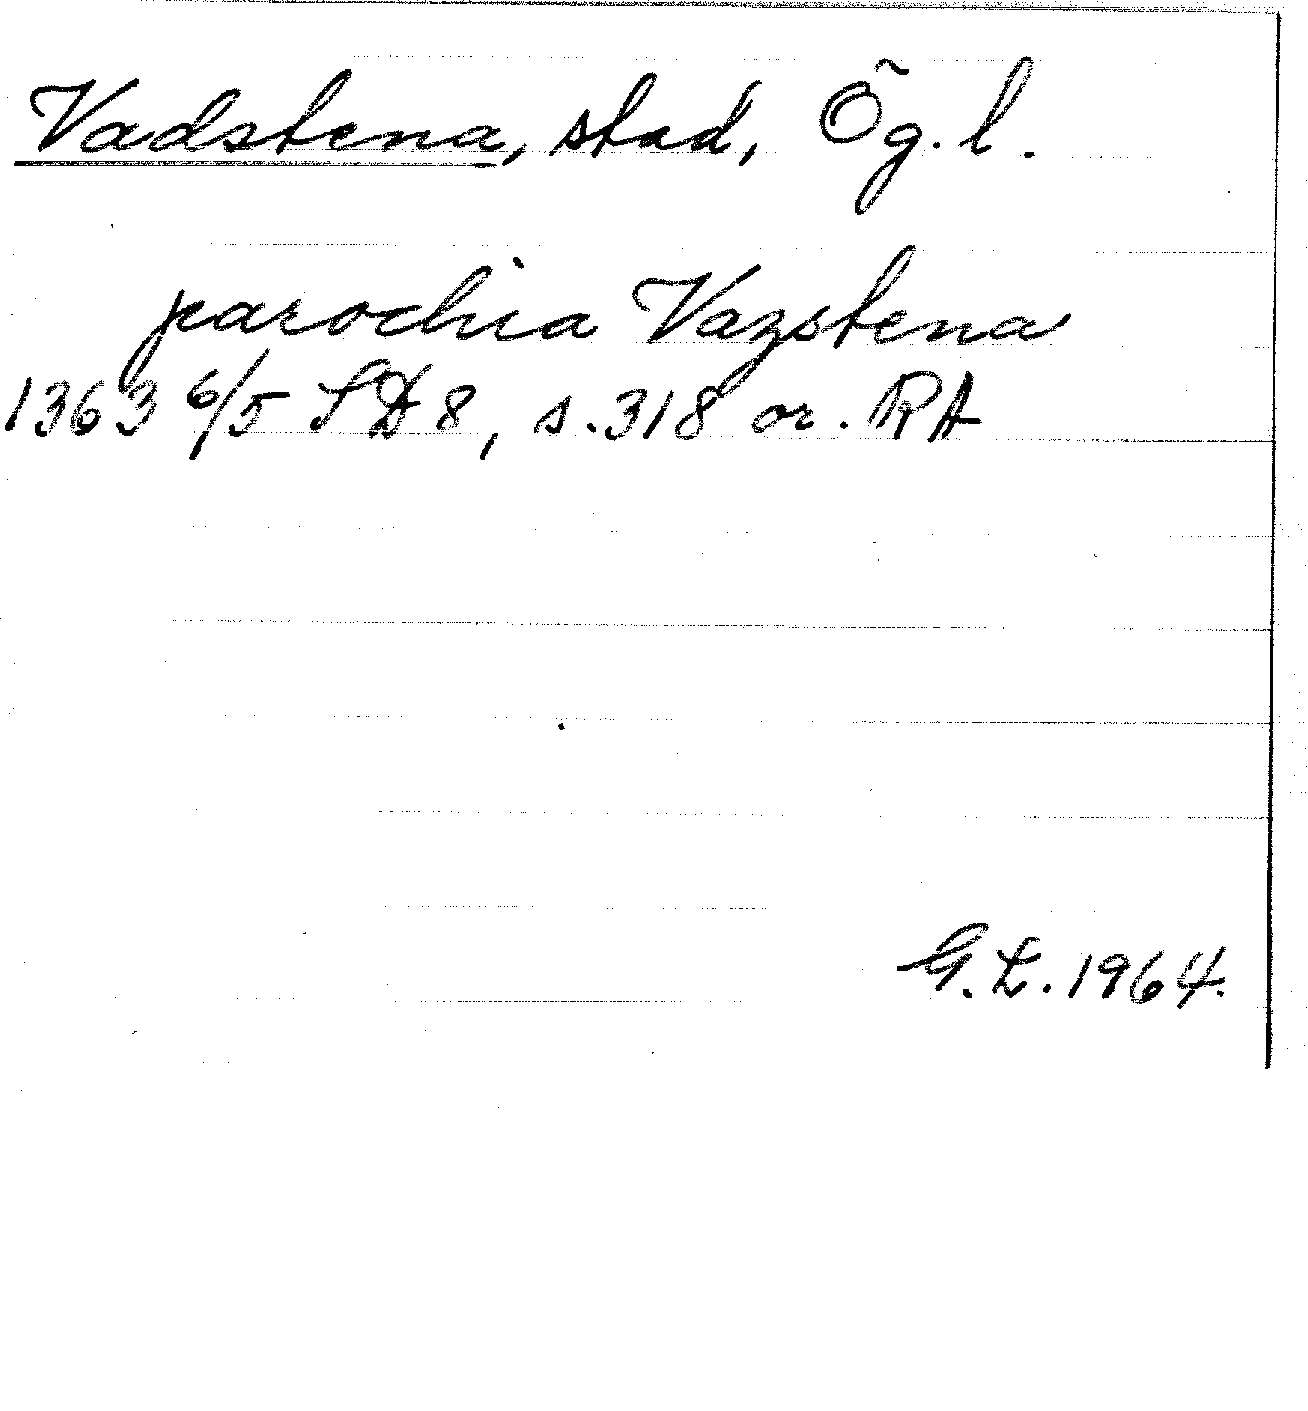 Vadstena, stad, Ög. l.
parochia Vazstena
1363 6/5 SD 8, s. 318 or. RA
G. L. 1964.